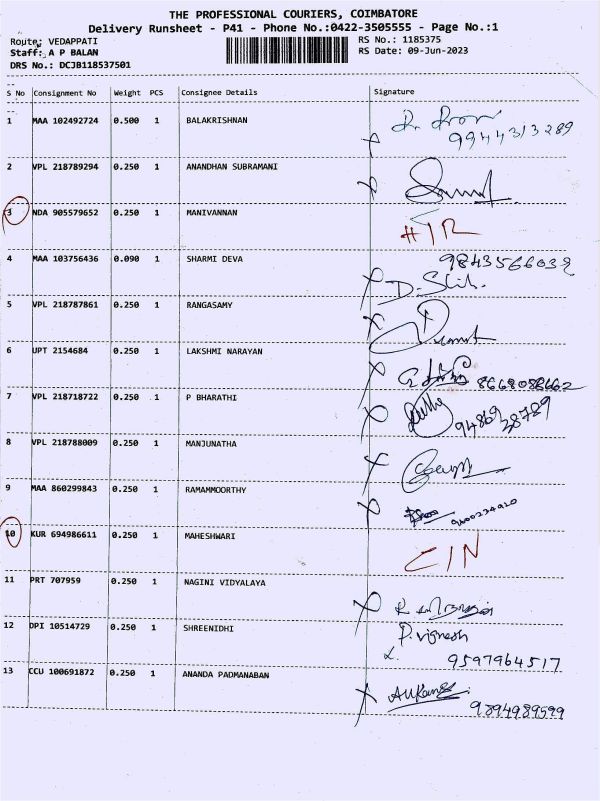 THE PROFESSIONAL COURIERS, COIMBATORE
Delivery Runsheet - P41 - Phone No.:0422-3505555 - Page No.:1
Route: VEDAPPATI RS No.: 1185375
Staff: A P BALAN RS Date: 09-Jun-2023
DRS No.: DCJB118537501
S No Consignment No Weight PCS Consignee Details Signature
1 MAA 102492724 0.500 1 BALAKRISHNAN
9944313289
2 VPL 218789294 0.250 1 ANANDHAN SUBRAMANI
3 NDA 905579652 0.250 1 MANIVANNAN
4 MAA 103756436 0.090 1 SHARMI DEVA 9843566032
5 VPL 218787861 0.250 1 RANGASAMY
6 UPT 2154684 0.250 1 LAKSHMI NARAYAN
7 VPL 218718722 0.250 1 P BHARATHI
8 VPL 218788009 0.250 1 MANJUNATHA
9 MAA 860299843 0.250 1 RAMAMMOORTHY
10 KUR 694986611 0.250 1 MAHESHWARI
CIN
11 PRT 707959 0.250 1 NAGINI VIDYALAYA
12 DPI 10514729 0.250 1 SHREENIDHI P. vignesh
9597964517
13 CCU 100691872 0.250 1 ANANDA PADMANABAN
9894989599